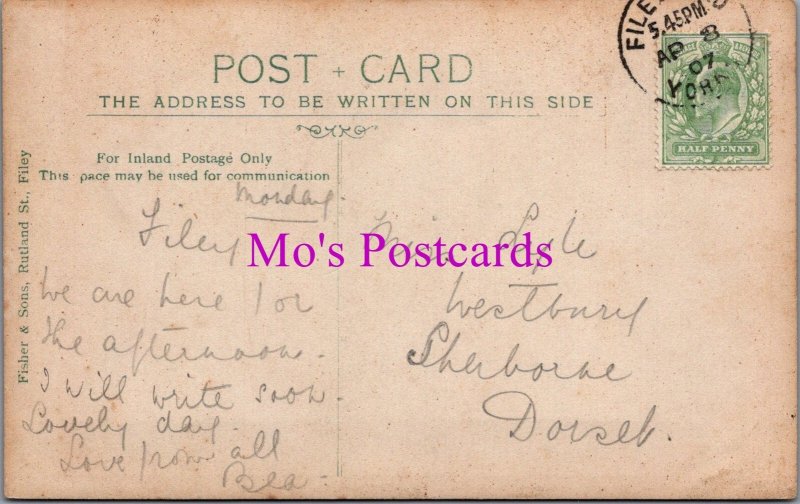 POST + CARD
THE ADDRESS TO BE WRITTEN ON THIS SIDE
For Inland Postage Only
This pace may be used for communication
Fisher & Sons, Rutland St., Filey
FILEY
5.45PM
AP 8
07
YORK
HALF PENNY
Monday.
Filey
We are here for
the afternoon.
I will write soon.
Lovely day.
Love from all
Bea
Miss Lyle
Westbury
Sherborne
Dorset.
Mo's Postcards